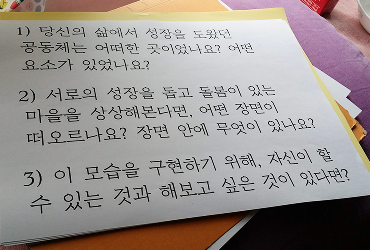 1) 당신의 삶에서 성장을 도왔던
공동체는 어떠한 곳이었나요? 어떤
요소가 있었나요?
2) 서로의 성장을 돕고 돌봄이 있는
마을을 상상해본다면, 어떤 장면이
떠오르나요? 장면 안에 무엇이 있나요?
3) 이 모습을 구현하기 위해, 자신이 할
수 있는 것과 해보고 싶은 것이 있다면?